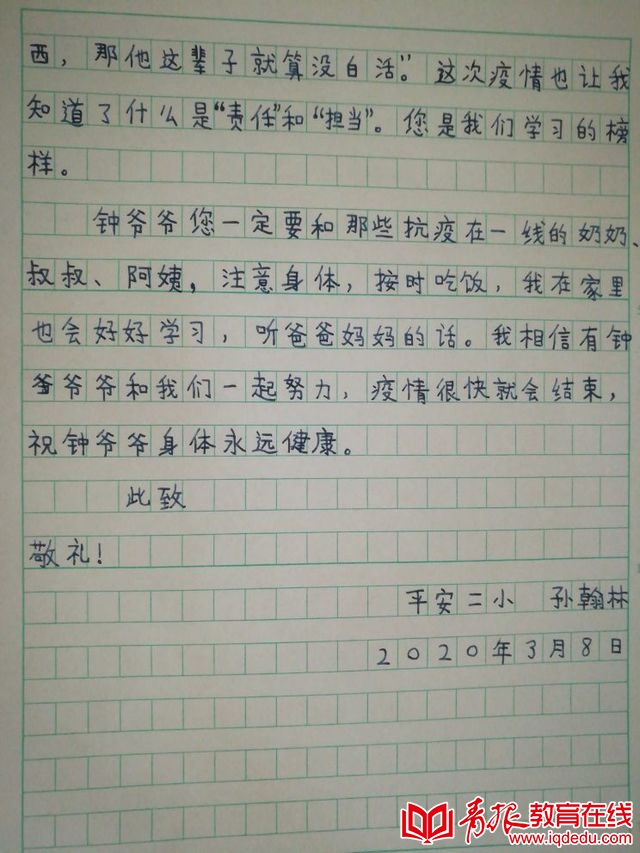 西，那他这辈子就算没白活”。这次疫情也让我
知道了什么是“责任”和“担当”。您是我们学习的榜
样。
钟爷爷您一定要和那些抗疫在一线的奶奶、
叔叔、阿姨，注意身体，按时吃饭，我在家里
也会好好学习，听爸爸妈妈的话。我相信有钟
爷爷和我们一起努力，疫情很快就会结束，
祝钟爷爷身体永远健康。
此致
敬礼！
平安二小 孙翰林
2020年3月8日
青报教育在线
www.iqdedu.com